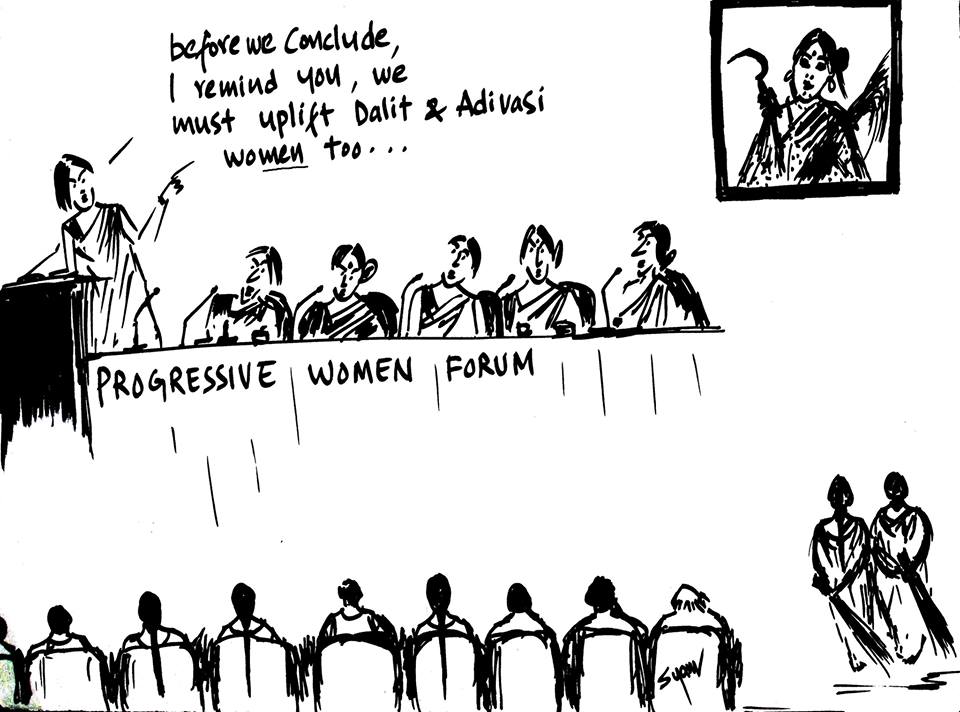 before we Conclude,
I remind you, we
must uplift Dalit & Adivasi
women too...
PROGRESSIVE WOMEN FORUM